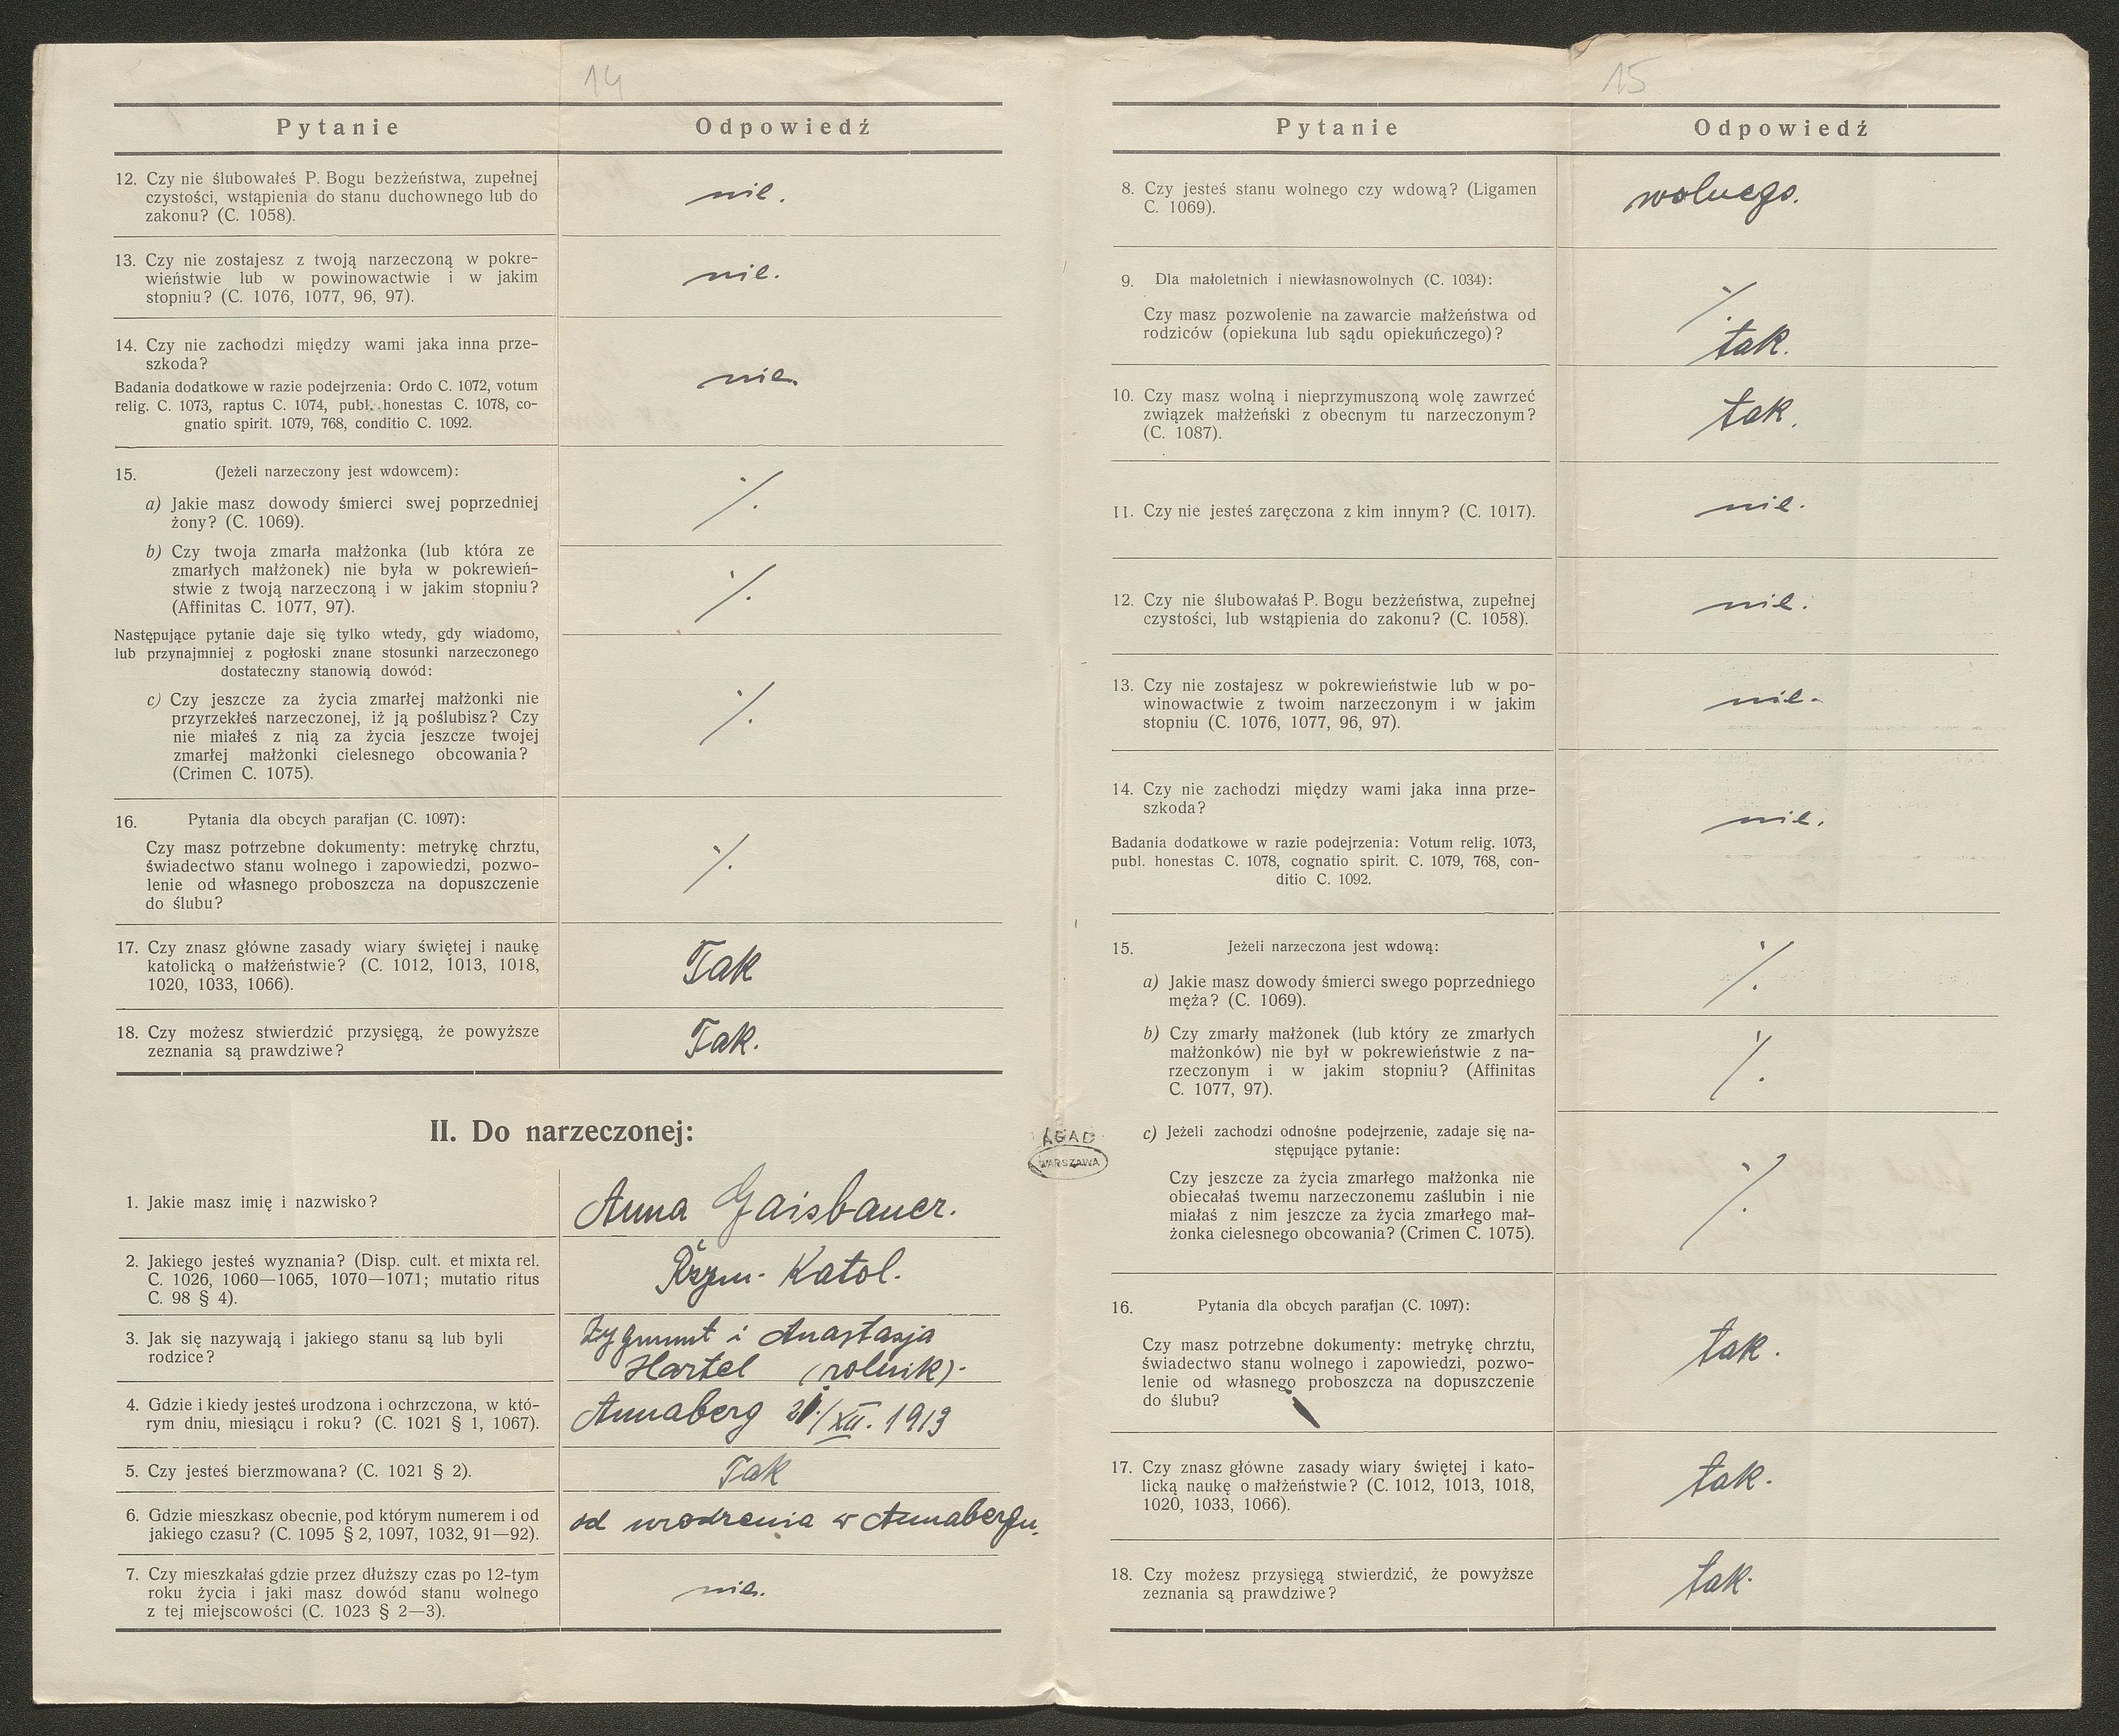 14
Pytanie Odpowiedź
12. Czy nie ślubowałeś P. Bogu bezżeństwa, zupełnej
czystości, wstąpienia do stanu duchownego lub do
zakonu? (C. 1058).
nie.
13. Czy nie zostajesz z twoją narzeczoną w pokre-
wieństwie lub w powinowactwie i w jakim
stopniu? (C. 1076, 1077, 96, 97).
nie.
14. Czy nie zachodzi między wami jaka inna prze-
szkoda?
Badania dodatkowe w razie podejrzenia: Ordo C. 1072, votum
relig. C. 1073, raptus C. 1074, publ. honestas C. 1078, co-
gnatio spirit. 1079, 768, conditio C. 1092.
nie.
15. (Jeżeli narzeczony jest wdowcem):
a) Jakie masz dowody śmierci swej poprzedniej
żony? (C. 1069).
./.
b) Czy twoja zmarła małżonka (lub która ze
zmarłych małżonek) nie była w pokrewień-
stwie z twoją narzeczoną i w jakim stopniu?
(Affinitas C. 1077, 97).
./.
Następujące pytanie daje się tylko wtedy, gdy wiadomo,
lub przynajmniej z pogłoski znane stosunki narzeczonego
dostateczny stanowią dowód:
c) Czy jeszcze za życia zmarłej małżonki nie
przyrzekłeś narzeczonej, iż ją poślubisz? Czy
nie miałeś z nią za życia jeszcze twojej
zmarłej małżonki cielesnego obcowania?
(Crimen C. 1075).
./.
16. Pytania dla obcych parafjan (C. 1097):
Czy masz potrzebne dokumenty: metrykę chrztu,
świadectwo stanu wolnego i zapowiedzi, pozwo-
lenie od własnego proboszcza na dopuszczenie
do ślubu?
./.
17. Czy znasz główne zasady wiary świętej i naukę
katolicką o małżeństwie? (C. 1012, 1013, 1018,
1020, 1033, 1066).
Tak
18. Czy możesz stwierdzić przysięgą, że powyższe
zeznania są prawdziwe?
Tak.
II. Do narzeczonej:
1. Jakie masz imię i nazwisko?
Anna Gaisbauer.
2. Jakiego jesteś wyznania? (Disp. cult. et mixta rel.
C. 1026, 1060—1065, 1070—1071; mutatio ritus
C. 98 § 4).
Rzym. Katol.
3. Jak się nazywają i jakiego stanu są lub byli
rodzice?
Zygmunt i Anastazja
Hartel (rolnik).
4. Gdzie i kiedy jesteś urodzona i ochrzczona, w któ-
rym dniu, miesiącu i roku? (C. 1021 § 1, 1067).
Annaberg 21./XII. 1913
5. Czy jesteś bierzmowana? (C. 1021 § 2).
Tak
6. Gdzie mieszkasz obecnie, pod którym numerem i od
jakiego czasu? (C. 1095 § 2, 1097, 1032, 91—92).
od urodzenia w Annabergu.
7. Czy mieszkałaś gdzie przez dłuższy czas po 12-tym
roku życia i jaki masz dowód stanu wolnego
z tej miejscowości (C. 1023 § 2—3).
nie.
AGAD
WARSZAWA
15
Pytanie Odpowiedź
8. Czy jesteś stanu wolnego czy wdową? (Ligamen
C. 1069).
wolnego.
9. Dla małoletnich i niewłasnowolnych (C. 1034):
Czy masz pozwolenie na zawarcie małżeństwa od
rodziców (opiekuna lub sądu opiekuńczego)?
./.
tak.
10. Czy masz wolną i nieprzymuszoną wolę zawrzeć
związek małżeński z obecnym tu narzeczonym?
(C. 1087).
tak.
11. Czy nie jesteś zaręczona z kim innym? (C. 1017).
nie.
12. Czy nie ślubowałaś P. Bogu bezżeństwa, zupełnej
czystości, lub wstąpienia do zakonu? (C. 1058).
nie.
13. Czy nie zostajesz w pokrewieństwie lub w po-
winowactwie z twoim narzeczonym i w jakim
stopniu (C. 1076, 1077, 96, 97).
nie.
14. Czy nie zachodzi między wami jaka inna prze-
szkoda?
Badania dodatkowe w razie podejrzenia: Votum relig. 1073,
publ. honestas C. 1078, cognatio spirit. C. 1079, 768, con-
ditio C. 1092.
nie.
15. Jeżeli narzeczona jest wdową:
a) Jakie masz dowody śmierci swego poprzedniego
męża? (C. 1069).
./.
b) Czy zmarły małżonek (lub który ze zmarłych
małżonków) nie był w pokrewieństwie z na-
rzeczonym i w jakim stopniu? (Affinitas
C. 1077, 97).
./.
c) Jeżeli zachodzi odnośne podejrzenie, zadaje się na-
stępujące pytanie:
Czy jeszcze za życia zmarłego małżonka nie
obiecałaś twemu narzeczonemu zaślubin i nie
miałaś z nim jeszcze za życia zmarłego mał-
żonka cielesnego obcowania? (Crimen C. 1075).
./.
16. Pytania dla obcych parafjan (C. 1097):
Czy masz potrzebne dokumenty: metrykę chrztu,
świadectwo stanu wolnego i zapowiedzi, pozwo-
lenie od własnego proboszcza na dopuszczenie
do ślubu?
tak.
17. Czy znasz główne zasady wiary świętej i kato-
licką naukę o małżeństwie? (C. 1012, 1013, 1018,
1020, 1033, 1066).
tak.
18. Czy możesz przysięgą stwierdzić, że powyższe
zeznania są prawdziwe?
tak.